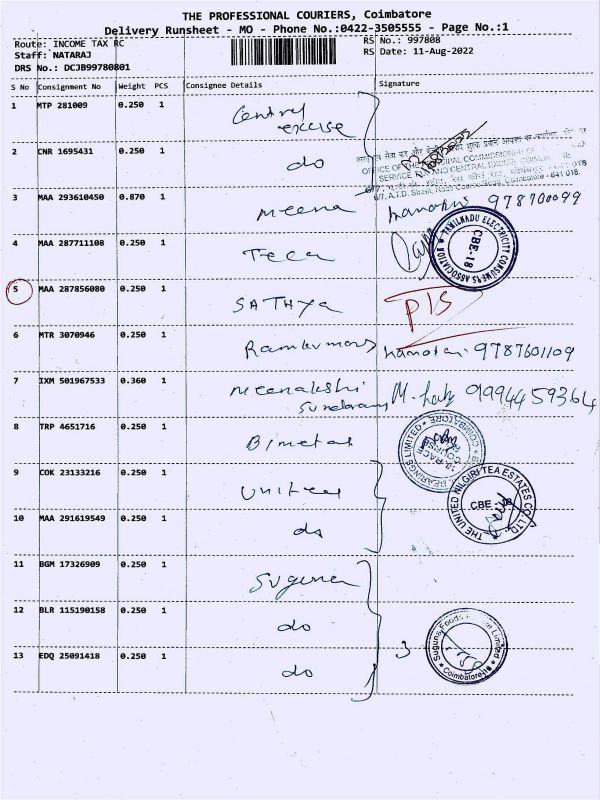 THE PROFESSIONAL COURIERS, Coimbatore
Delivery Runsheet - MO - Phone No.:0422-3505555 - Page No.:1
Route: INCOME TAX RC
RS No.: 997808
Staff: NATARAJ
RS Date: 11-Aug-2022
DRS No.: DCJB99780801
S No Consignment No Weight PCS Consignee Details Signature
1 MTP 281009 0.250 1 Central excise
2 CNR 1695431 0.250 1 do
OFFICE OF THE PRINCIPAL COMMISSIONER OF
SERVICE TAX AND CENTRAL EXCISE, COIMBATORE
6/7, A.T.D. Street, Race Course Road, Coimbatore - 641 018.
3 MAA 293610450 0.870 1 Meena 978700099
4 MAA 287711108 0.250 1 Teca
TAMILNADU ELECTRICITY CONSUMERS ASSOCIATION
CBE-18
5 MAA 287856080 0.250 1 SATHYA P1S
6 MTR 3070946 0.250 1 Ramkumar 9787601109
7 IXM 501967533 0.360 1 Meenakshi Sundaram M. 9994459364
8 TRP 4651716 0.250 1 Bimetal
BEARINGS LIMITED COIMBATORE
RACE COURSE
9 COK 23133216 0.250 1 United
THE UNITED NILGIRI TEA ESTATES CO. LTD.
CBE - 18
10 MAA 291619549 0.250 1 do
11 BGM 17326909 0.250 1 Suguna
12 BLR 115190158 0.250 1 do
13 EDQ 25091418 0.250 1 do 3
Suguna Foods Private Limited
Coimbatore-18